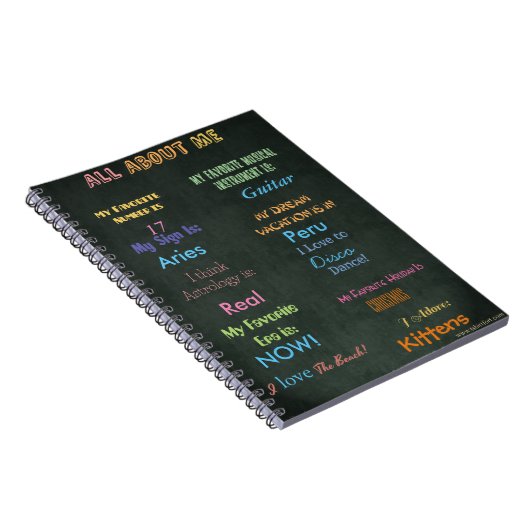 ALL ABOUT ME
MY FAVORITE
NUMBER IS
17
My Sign Is:
Aries
I think
Astrology is:
Real
My Favorite
Era is:
NOW!
I love The Beach!
MY FAVORITE MUSICAL
INSTRUMENT IS:
Guitar
MY DREAM
VACATION IS IN
Peru
I Love to
Disco
Dance!
My Favorite Holiday Is
CHRISTMAS
I Adore:
Kittens